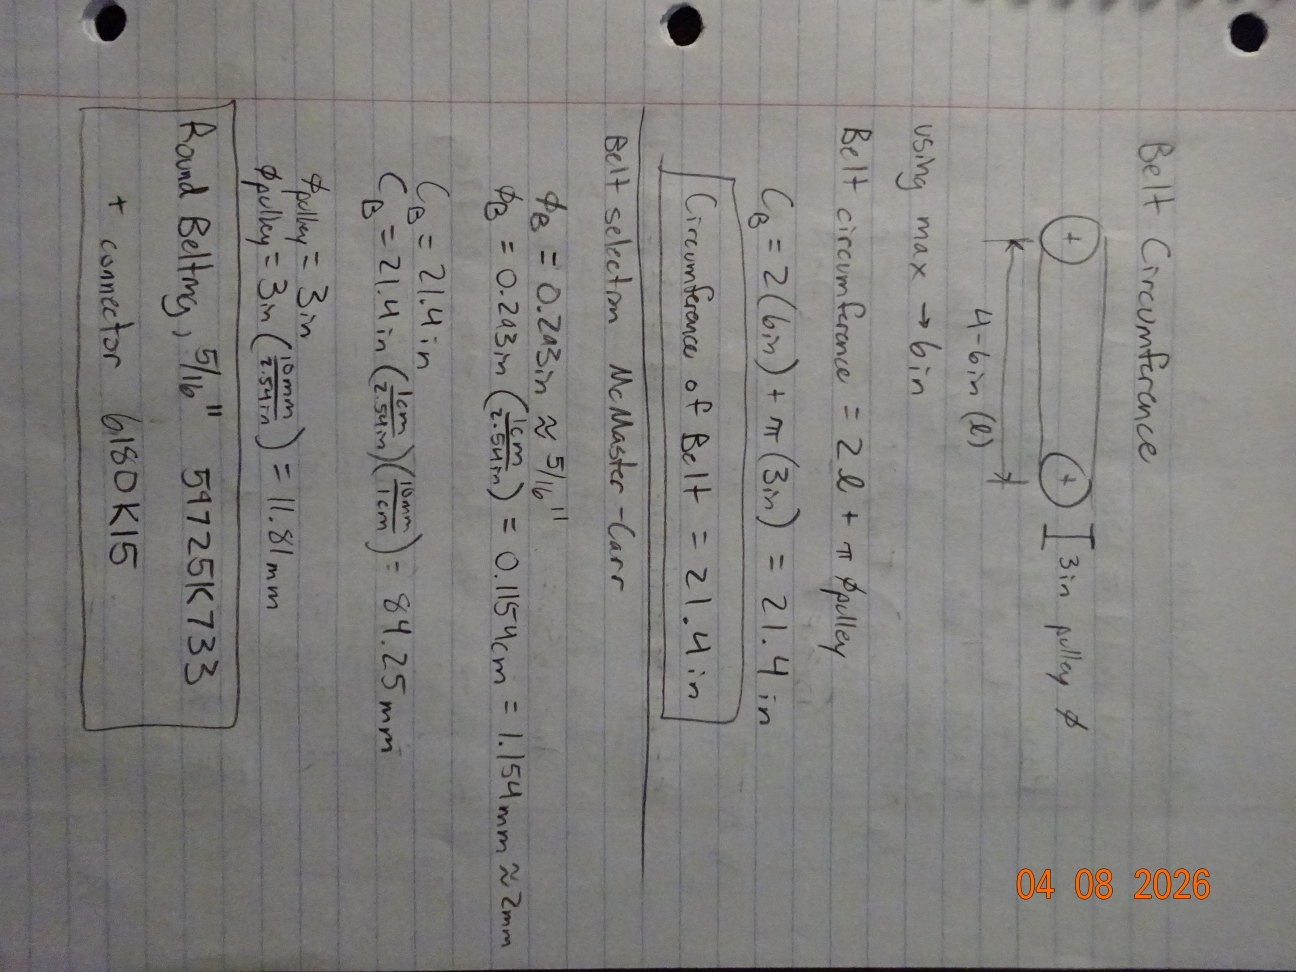 Belt Circumference
3in pulley ϕ
4-6in (l)
using max → 6in
Belt circumference = 2l + π ϕpulley
C_B = 2(6in) + π(3in) = 21.4in
Circumference of Belt = 21.4in
Belt selection McMaster-Carr
ϕ_B = 0.293in ≈ 5/16"
ϕ_B = 0.293in (1cm/2.54in) = 0.1154cm = 1.154mm ≈ 2mm
C_B = 21.4in
C_B = 21.4in (1cm/2.54in)(10mm/1cm) = 84.25mm
ϕpulley = 3in
ϕpulley = 3in (10mm/2.54in) = 11.81mm
Round Belting, 5/16" 59725K733
+ connector 6180K15
04 08 2026